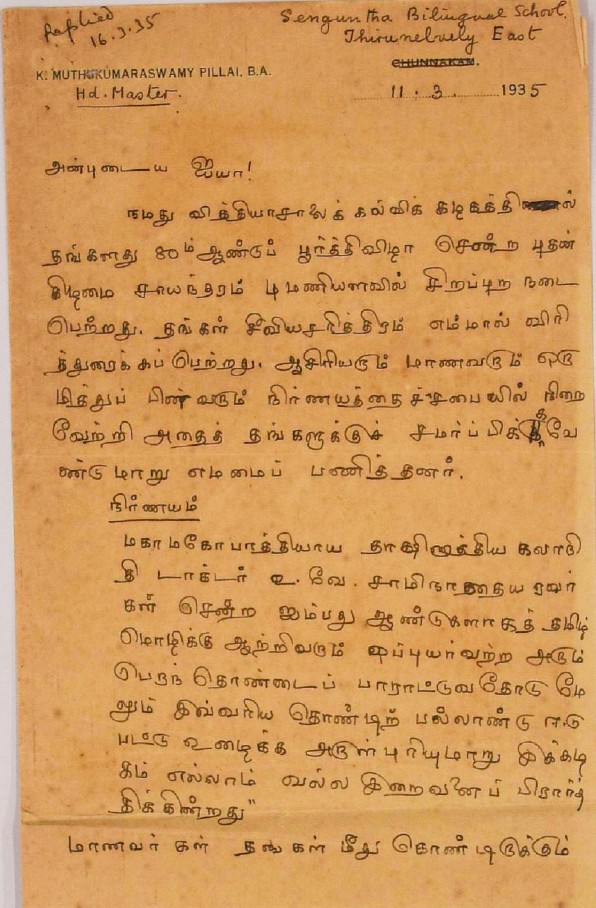 Replied
16.3.35
Senguntha Bilingual School,
Thirunelvely East
K. MUTHUKUMARASWAMY PILLAI, B.A.
CHUNNAKAM.
Hd. Master.
11.3.1935
அன்புடைய ஐயா!
நமது வித்தியாசாலைக் கல்விக் கழகத்தினால்
தங்களது 80ம் ஆண்டுப் பூர்த்திவிழா சென்ற புதன்
கிழமை சாயந்தரம் 4 மணியளவில் சிறப்புற நடை
பெற்றது. தங்கள் சீவியசரித்திரம் எம்மால் விரி
த்துரைக்கப் பெற்றது. ஆசிரியரும் மாணவரும் ஒரு
மித்துப் பின்வரும் நிர்ணயத்தைச் சபையில் நிறை
வேற்றி அதைத் தங்களுக்குச் சமர்ப்பிக்க வே
ண்டுமாறு எம்மைப் பணித்தனர்.
நிர்ணயம்
மகாமகோபாத்தியாய தாக்ஷிணாத்திய கலாநி
தி டாக்டர் உ. வே. சாமிநாதைய ரவர்
கள் சென்ற ஐம்பது ஆண்டுகளாகத் தமிழ்
மொழிக்கு ஆற்றிவரும் ஒப்புயர்வற்ற அரும்
பெருந் தொண்டைப் பாராட்டுவதோடு மே
லும் இவ்வரிய தொண்டிற் பல்லாண்டு ஈடு
பட்டு உழைக்க அருள்புரியுமாறு இக்கழ
கம் எல்லாம் வல்ல இறைவனைப் பிரார்த்
திக்கின்றது"
மாணவர்கள் தங்கள் மீது கொண்டிருக்கும்